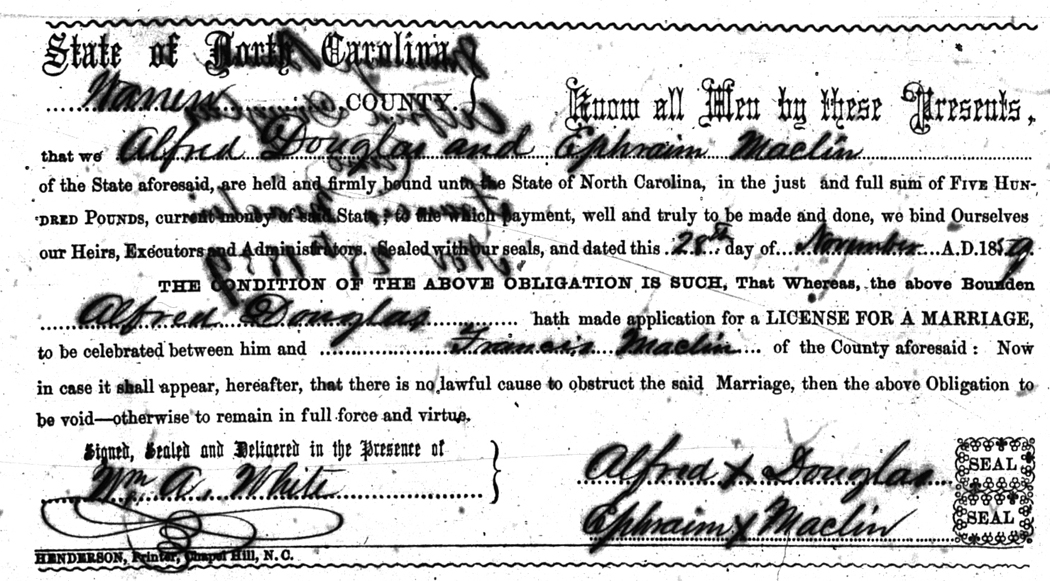 State of North Carolina,
Warren COUNTY. } Know all Men by these Presents,
that we Alfred Douglas and Ephraim Maclin
of the State aforesaid, are held and firmly bound unto the State of North Carolina, in the just and full sum of FIVE HUN-
DRED POUNDS, current money of said State; to the which payment, well and truly to be made and done, we bind Ourselves
our Heirs, Executors and Administrators. Sealed with our seals, and dated this 28th day of November A.D. 1859.
THE CONDITION OF THE ABOVE OBLIGATION IS SUCH, That Whereas, the above Bounden
Alfred Douglas hath made application for a LICENSE FOR A MARRIAGE,
to be celebrated between him and Francis Maclin of the County aforesaid: Now
in case it shall appear, hereafter, that there is no lawful cause to obstruct the said Marriage, then the above Obligation to
be void—otherwise to remain in full force and virtue.
Signed, Sealed and Delivered in the Presence of
Wm A. White
Alfred X Douglas SEAL
Ephraim X Maclin SEAL
HENDERSON, Printer, Chapel Hill, N. C.